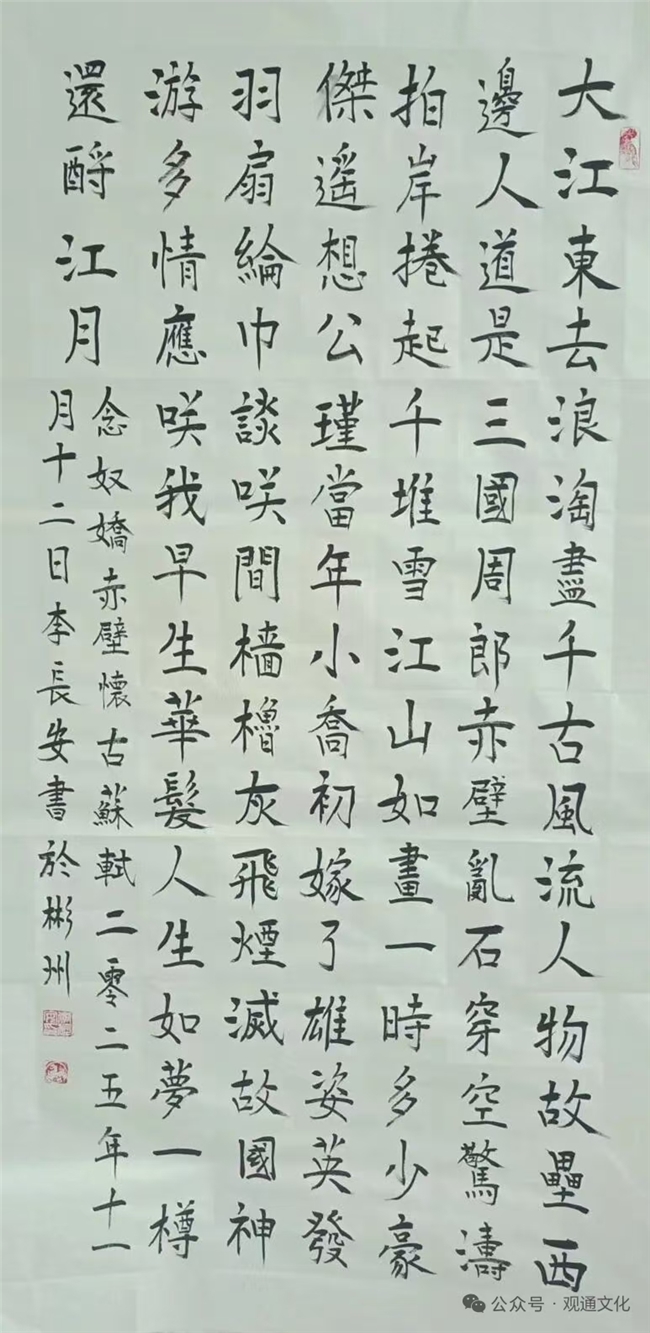 大江東去浪淘盡千古風流人物故壘西
邊人道是三國周郎赤壁亂石穿空驚濤
拍岸捲起千堆雪江山如畫一時多少豪
傑遙想公瑾當年小喬初嫁了雄姿英發
羽扇綸巾談咲間檣櫓灰飛煙滅故國神
游多情應咲我早生華髮人生如夢一樽
還酹江月
念奴嬌赤壁懷古蘇軾二零二五年十一
月十二日李長安書於彬州
公众号·观通文化